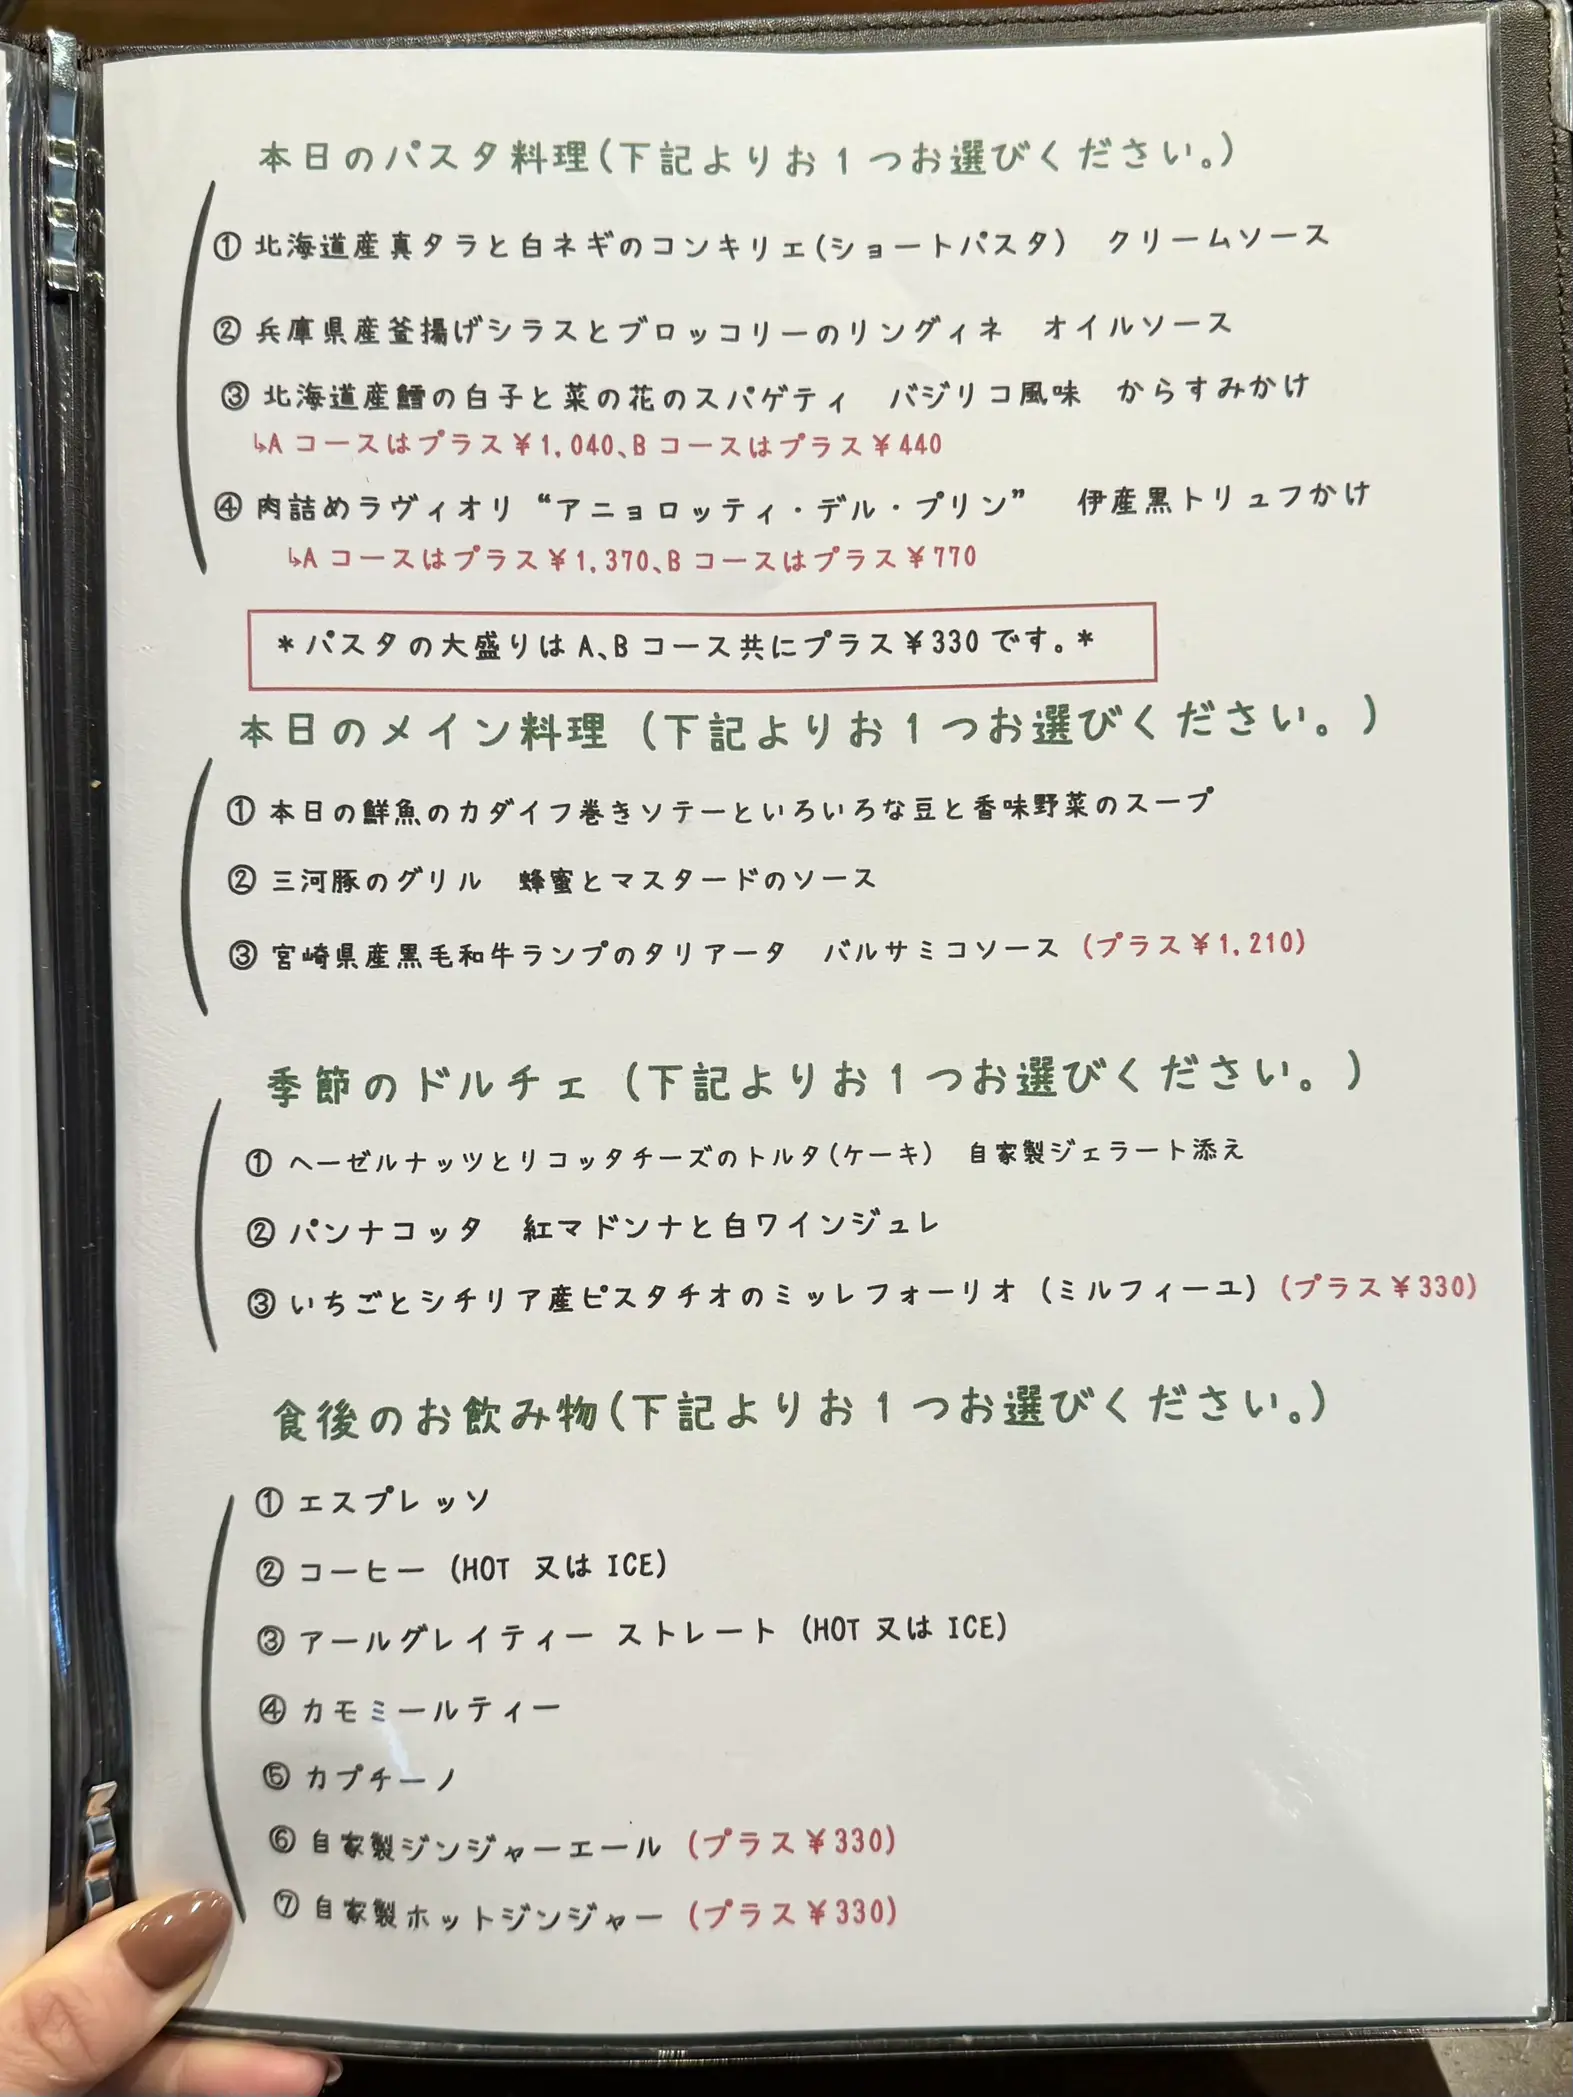 本日のパスタ料理(下記よりお1つお選びください。)
① 北海道産真タラと白ネギのコンキリエ(ショートパスタ)　クリームソース
② 兵庫県産釜揚げシラスとブロッコリーのリングィネ　オイルソース
③ 北海道産鱈の白子と菜の花のスパゲティ　バジリコ風味　からすみかけ
↳Aコースはプラス¥1,040、Bコースはプラス¥440
④ 肉詰めラヴィオリ“アニョロッティ・デル・プリン”　伊産黒トリュフかけ
↳Aコースはプラス¥1,370、Bコースはプラス¥770
*パスタの大盛りはA、Bコース共にプラス¥330です。*
本日のメイン料理(下記よりお1つお選びください。)
① 本日の鮮魚のカダイフ巻きソテーといろいろな豆と香味野菜のスープ
② 三河豚のグリル　蜂蜜とマスタードのソース
③ 宮崎県産黒毛和牛ランプのタリアータ　バルサミコソース (プラス¥1,210)
季節のドルチェ(下記よりお1つお選びください。)
① ヘーゼルナッツとリコッタチーズのトルタ(ケーキ)　自家製ジェラート添え
② パンナコッタ　紅マドンナと白ワインジュレ
③ いちごとシチリア産ピスタチオのミッレフォーリオ(ミルフィーユ)(プラス¥330)
食後のお飲み物(下記よりお1つお選びください。)
① エスプレッソ
② コーヒー (HOT 又は ICE)
③ アールグレイティー ストレート (HOT 又は ICE)
④ カモミールティー
⑤ カプチーノ
⑥ 自家製ジンジャーエール (プラス¥330)
⑦ 自家製ホットジンジャー (プラス¥330)